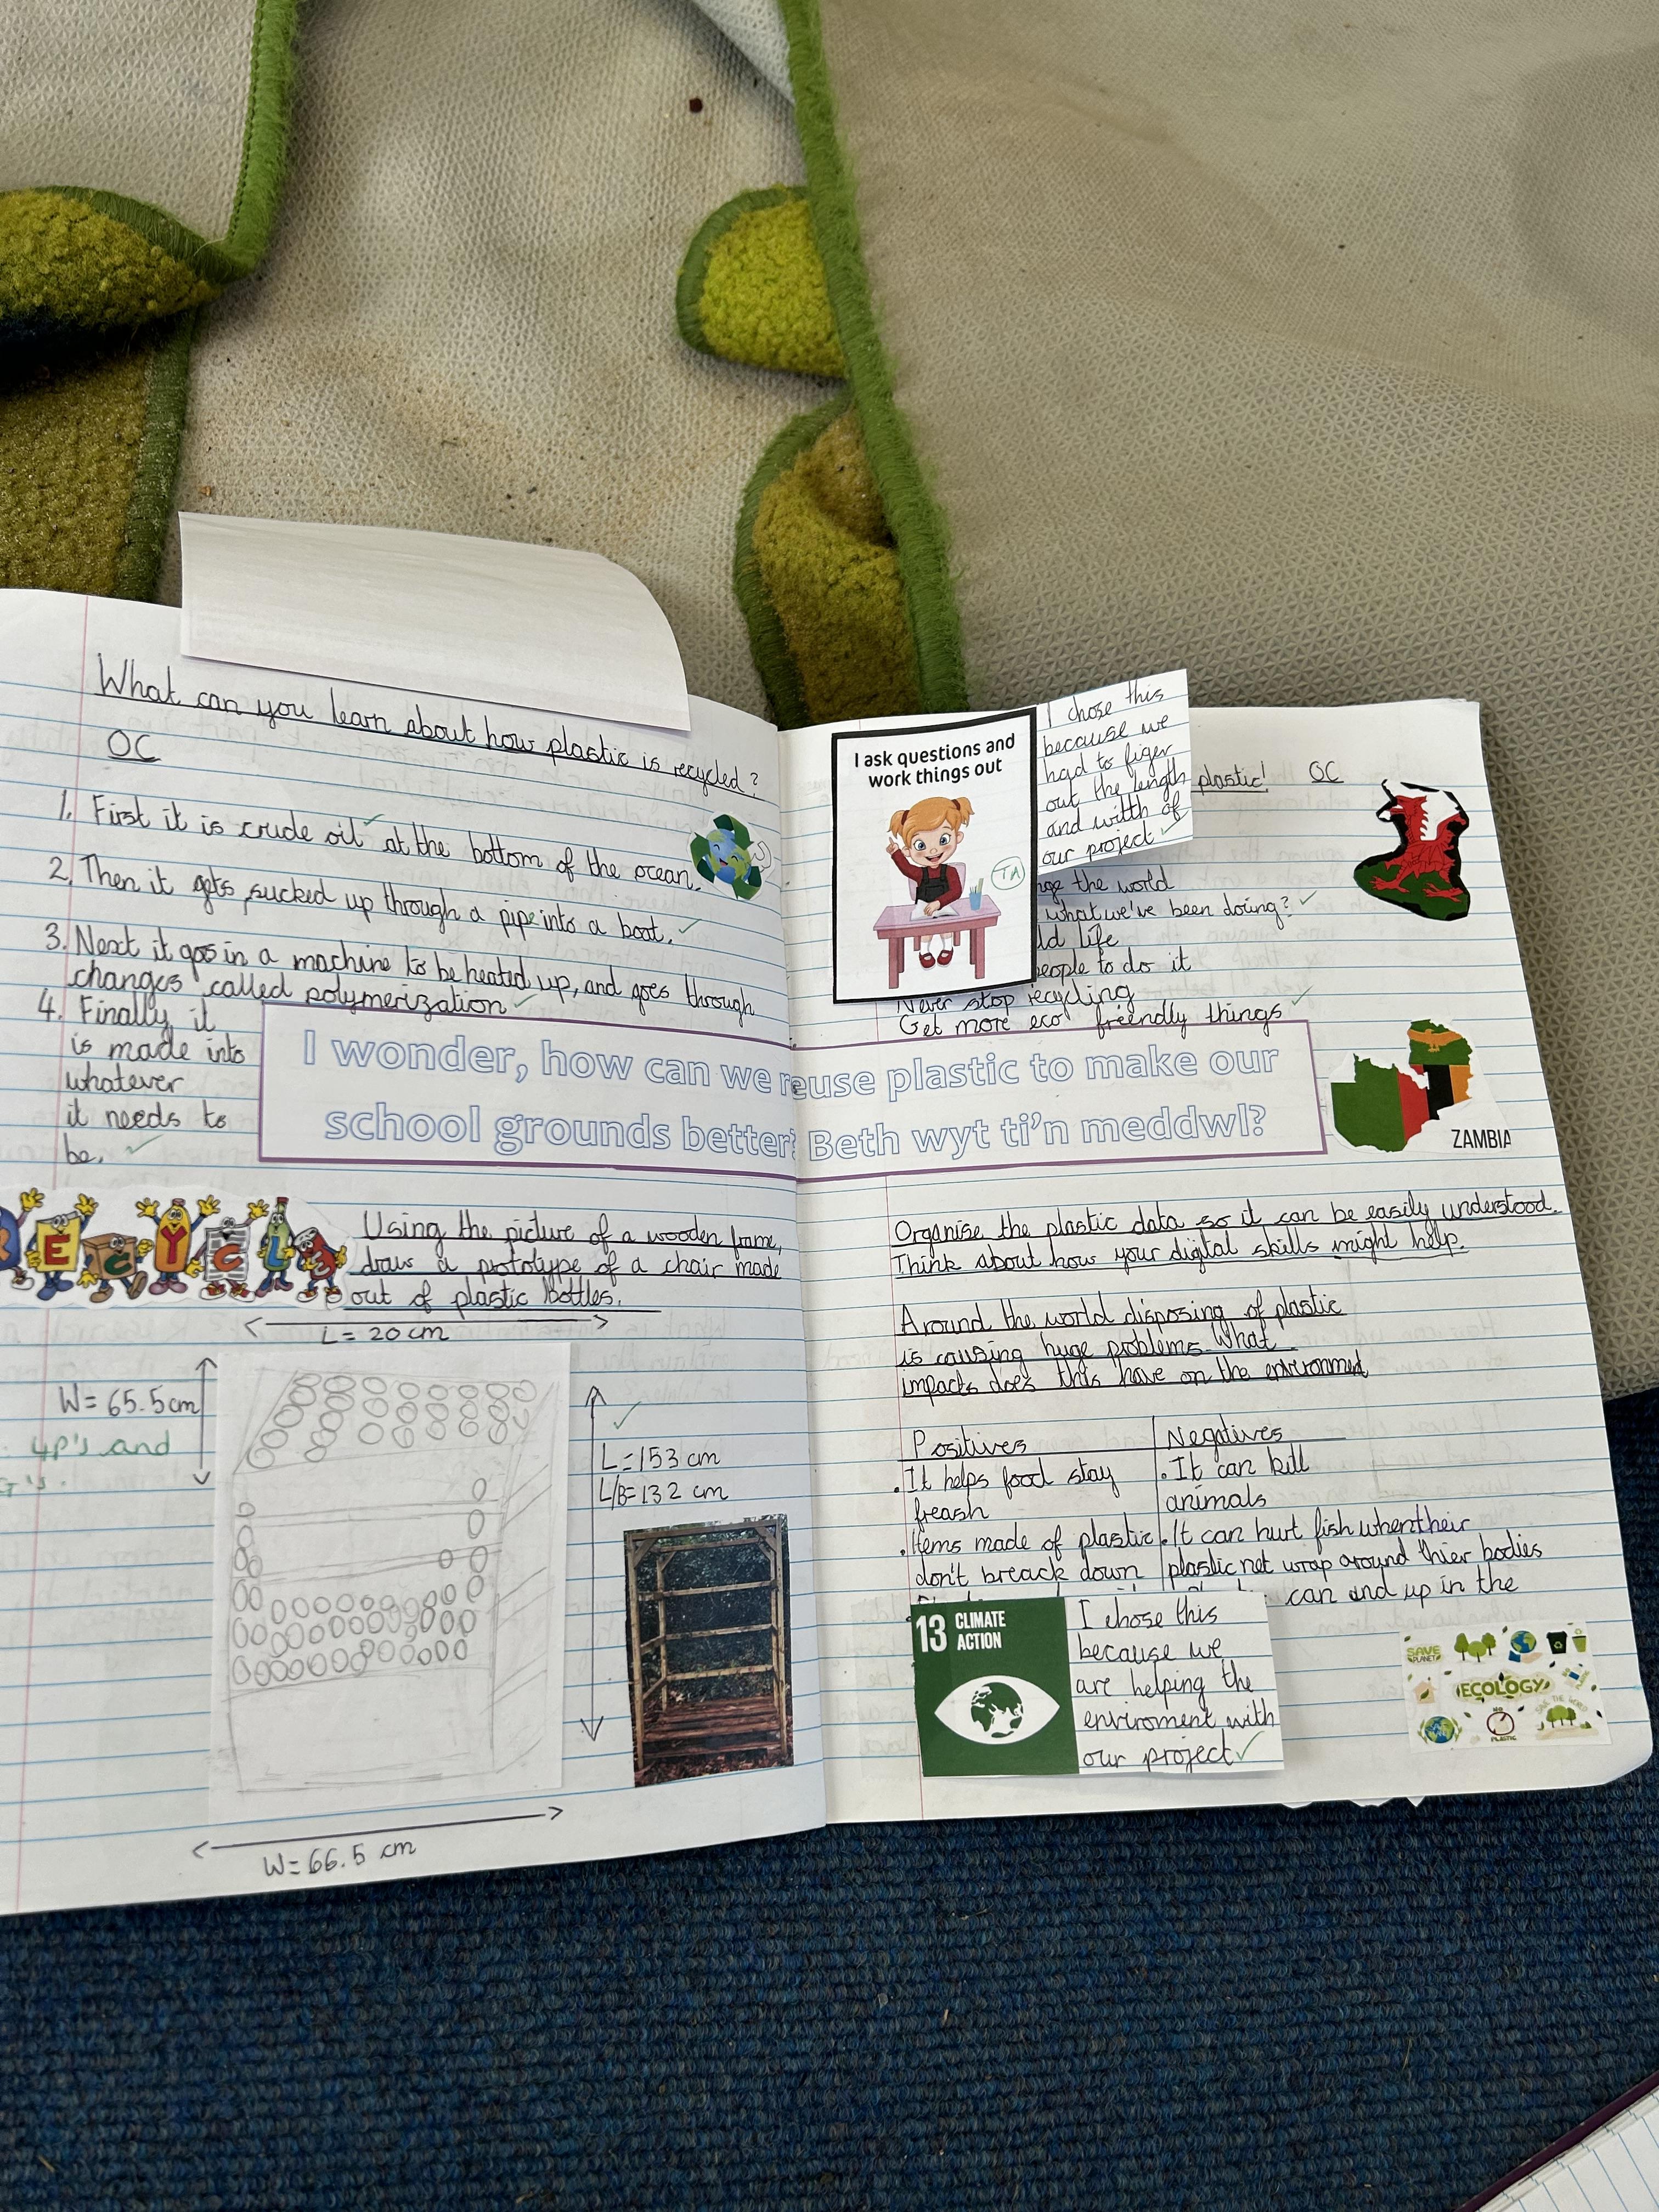 What can you learn about how plastic is recycled?
OC
1. First it is crude oil at the bottom of the ocean.
2. Then it gets sucked up through a pipe into a boat.
3. Next it gos in a machine to be heated up, and goes through
changes called polymerization
4. Finally it
is made into
whatever
it needs to
be.
I wonder, how can we reuse plastic to make our
school grounds better? Beth wyt ti'n meddwl?
RECYCLE
Using the picture of a wooden frame,
draw a prototype of a chair made
out of plastic bottles.
L= 20 cm
W= 65.5cm
4P's and
G's.
L=153 cm
L/B=132 cm
W=66.5 cm
I ask questions and
work things out
TA
I chose this
because we
had to figer
out the length
and witth of
our project
plastic! OC
the world
what we've been doing?
life
people to do it
Never stop recycling
Get more eco friendly things
ZAMBIA
Organise the plastic data so it can be easily understood.
Think about how your digital skills might help.
Around the world disposing of plastic
is causing huge problems. What
impacts does this have on the
Positives
.It helps food stay
freash
.Items made of plastic
don't breack down
Negatives
.It can kill
animals
.It can hurt fish when their
plastic net wrap around thier bodies
can end up in the
13 CLIMATE
ACTION
I chose this
because we
are helping the
enviroment with
our project
SAVE
PLANET
ECOLOGY
SAVE THE WORLD
NO
PLASTIC